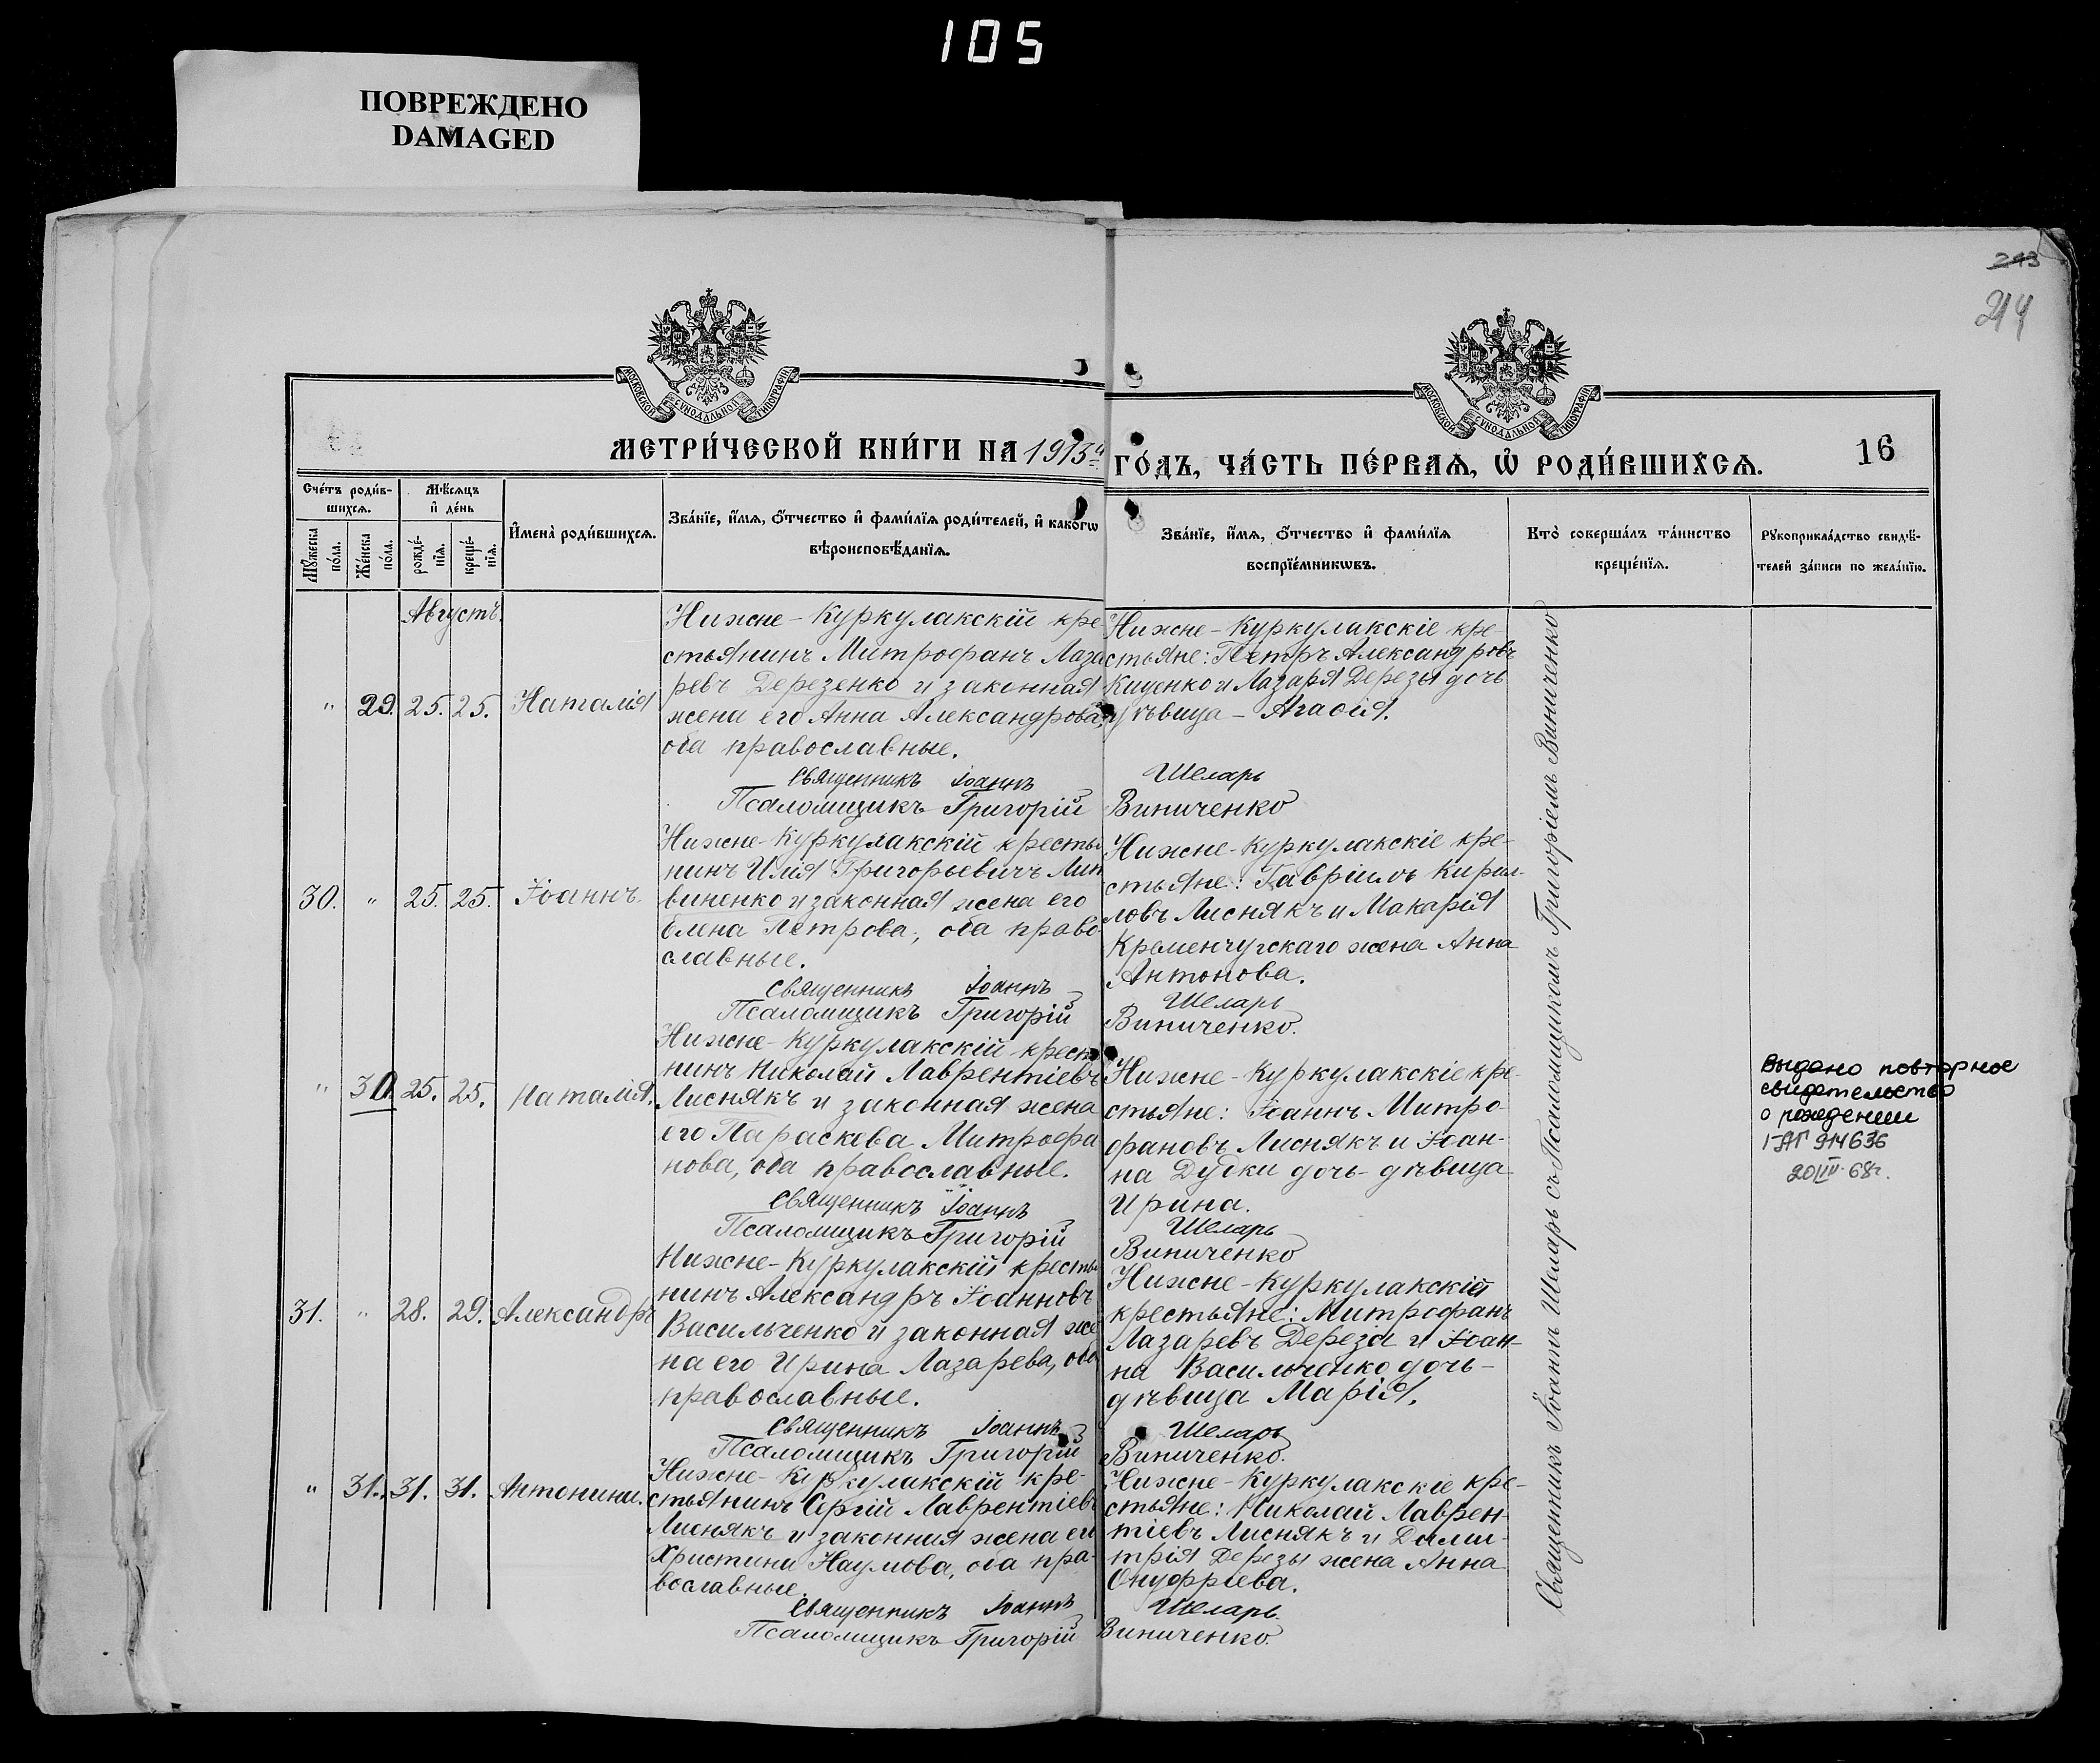 105
ПОВРЕЖДЕНО
DAMAGED
243
214
МОСКОВСКОЙ СѴНОДАЛЬНОЙ ТИПОГРАФІИ
МОСКОВСКОЙ СѴНОДАЛЬНОЙ ТИПОГРАФІИ
МЕТРИ́ЧЕСКОЙ КНИ́ГИ НА 1913й
ГО́ДЪ, ЧА́СТЬ ПЕ́РВАѦ, Ѡ РОДИ́ВШИХСѦ.
16
Сче́тъ роди́в-
шихсѧ.
Мѣ́сѧцъ
и де́нь
Мꙋ́жеска
по́ла.
Же́нска
по́ла.
рожде́-
нїѧ.
креще́-
нїѧ.
Имена̀ роди́вшихсѧ.
Зва́нїе, и́мѧ, ѻ́тчество и фами́лїѧ роди́телей, и како́гѡ
вѣроисповѣ́данїѧ.
Зва́нїе, и́мѧ, ѻ́тчество и фами́лїѧ
воспрїе́мникѡвъ.
Кто̀ соверша́лъ та́инство
креще́нїѧ.
Рꙋкоприкла́дство свидѣ́-
телей за́писи по жела́нїю.
Августъ.
" 29. 25. 25. Наталія
Нижне-Куркулакскій кре
стьянинъ Митрофанъ Лаза
ревъ Дерезенко и законная
жена его Анна Александрова,
оба православные.
Священникъ Іоаннъ
Псаломщикъ Григорій
Нижне-Куркулакскіе кре-
стьяне: Петръ Александровъ
Киценко и Лазаря Дерезы дочь
дѣвица - Агафія.
Шеларь
Виниченко
30. " 25. 25. Іоаннъ.
Нижне-Куркулакскій крестья
нинъ Илія Григорьевичъ Лит
виненко и законная жена его
Елена Петрова, оба право-
славные.
Священникъ Іоаннъ
Псаломщикъ Григорій
Нижне-Куркулакскіе кре-
стьяне: Гавріилъ Кирил-
ловъ Лиснякъ и Макарія
Кременчугскаго жена Анна
Антонова.
Шеларь
Виниченко.
" 30. 25. 25. Наталія.
Нижне-Куркулакскій крестья
нинъ Николай Лаврентіевъ
Лиснякъ и законная жена
его Параскева Митрофа
нова, оба православные.
Священникъ Іоаннъ
Псаломщикъ Григорій
Нижне-Куркулакскіе кре-
стьяне: Іоаннъ Митро-
фановъ Лиснякъ и Іоан-
на Дудки дочь-дѣвица
Ирина.
Шеларь
Виниченко
выдано повторное
свидетельство
о рождении
I-АГ 914636
20/III-68г.
31. " 28. 29. Александръ
Нижне-Куркулакскій крестья
нинъ Александръ Іоанновъ
Васильченко и законная же
на его Ирина Лазарева, оба
православные.
Священникъ Іоаннъ
Псаломщикъ Григорій
Нижне-Куркулакскій
крестьяне: Митрофанъ
Лазаревъ Дереза и Іоан-
на Васильченко дочь-
дѣвица Марія.
Шеларь
Виниченко.
" 31. 31. 31. Антонина.
Нижне-Куркулакскій кре-
стьянинъ Сергій Лаврентіевъ
Лиснякъ и законная жена его
Христина Наумова, оба пра-
вославные.
Священникъ Іоаннъ
Псаломщикъ Григорій
Нижне-Куркулакскіе кре-
стьяне: Николай Лаврен-
тіевъ Лиснякъ и Дими-
трія Дерезы жена Анна
Онуфріева.
Шеларь.
Виниченко.
Священникъ Іоаннъ Шеларь съ Псаломщикомъ Григоріемъ Виниченко